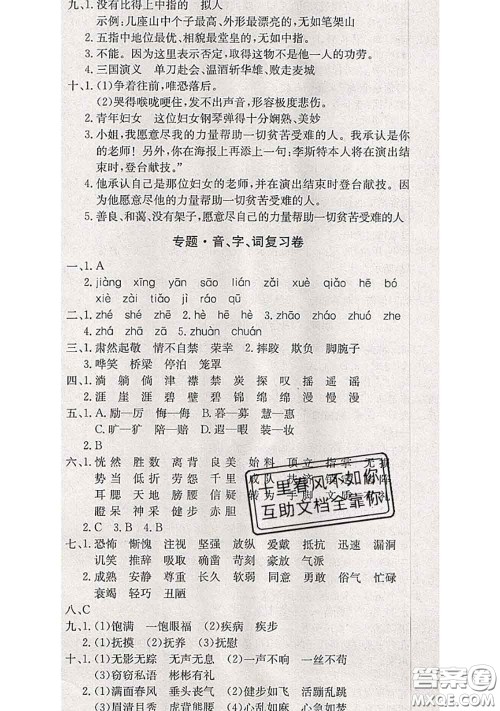 九、1.没有比得上中指的　拟人
示例：几座山中个子最高、外形最漂亮的，无如笔架山
2.五指中地位最优、曲线优美的，无如中指。
3.不能。因为这里表示否定，取得这物不是他一个人的功劳。
4.三国演义　单刀赴会、温酒斩华雄、败走麦城
十、1.(1)争着往前，唯恐落后。
(2)哭得喉咙哽住，发不出声音，形容极度悲伤。
2.青年妇女　这位妇女钢琴弹得十分娴熟、美妙
3.小姐，我愿意尽我的力量帮助一切贫苦受难的人。我承认是你
的老师！另外，你在海报上再添上一句：李斯特本人将在演出结
束时，登台献技。”
4.他承认自己是那位妇女的老师，并在演出结束时登台献技。因
为他愿意尽自己的力量帮助一切贫苦受难的人。
5.善良、和蔼、没有架子，愿意尽自己的力量帮助一切贫苦受难的人
专题·音、字、词复习卷
一、1.A
2.jiàng　xīng　yān　sān　liáo　zǎi　xuè　qiǎo　hē
xiáo　tiǎo　jì　ráo　qǔ
二、1.zhé　shé　zhē　2.hè　hē　hè　3.zhāo　zháo　zhuó　zhe
4.zhá　zhā　zā　5.zhuàn　chuán
三、1.肃然起敬　情不自禁　荣幸　2.摔跤　欺负　脚腕子
3.哗笑　桥梁　停泊　笼罩
四、1.淌　躺　倘　津　襟　禁　炭　探　叹　摇　遥　谣
2.涯　崖　涯　碧　壁　碧　锦　绵　绵　慢　漫　慢
五、1.A.励—厉　悔—侮　B.暮—募　慧—惠
C.旷—犷　陪—赔　D.遐—暇　装—妆
2.B
六、1.恍然　胜数　离背　良美　始料　顶立　指掌　无损
势当　固步　骄傲　千里　成队
耳腮　天地
瞪呆　神采　健步
2.C　3.B　4.B
七、1.恐怖　惭愧　注视　坚强　放纵　爱戴　抵抗　迅速　漏洞
讥笑　推辞　吸吮　确凿　苛刻　放开　气派
2.成熟　安静　尊重　长久　软弱　同意　勇敢　俗气　忙碌
衰竭　轻巧　丑陋
八、C
九、1.(1)饱满　一饱眼福　(2)疾病　疾步
2.(1)抚摸　(2)抚养　(3)抚慰
十、1.(1)无影无踪　无声无息　(2)一声不响　一丝不苟
(3)窃窃私语　彬彬有礼
2.(1)满面春风　垂头丧气　(2)健步如飞　活蹦乱跳
(3)眉清目秀　虎背熊腰　(4)
十里春风不如你
互助文档全靠你